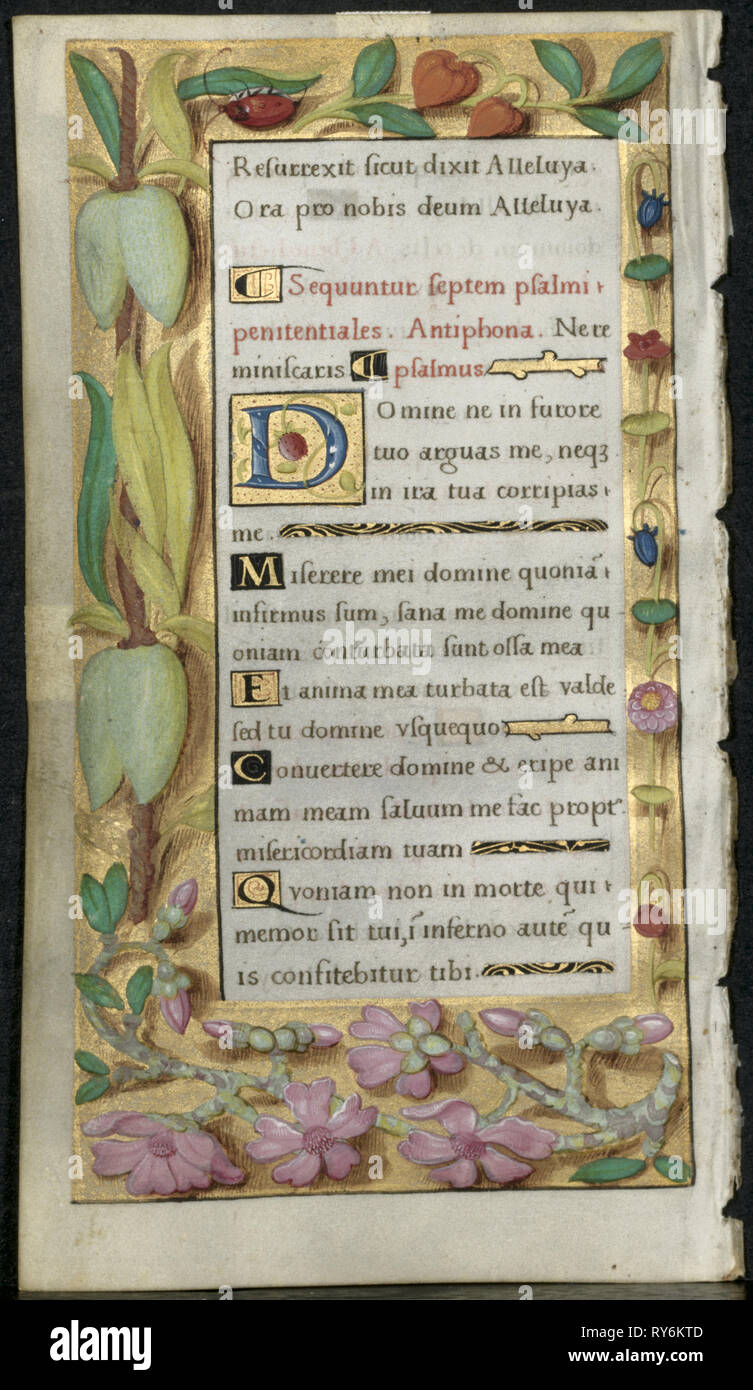 Resurrexit sicut dixit Alleluya.
Ora pro nobis deum Alleluya.
Sequuntur septem psalmi
penitentiales. Antiphona. Ne re
miniscaris psalmus
Domine ne in furore
tuo arguas me, neqʒ
in ira tua corripias
me.
Miserere mei domine quoniā
infirmus sum, sana me domine qu
oniam conturbata sunt ossa mea
Et anima mea turbata est valde
sed tu domine vsquequo
Conuertere domine & eripe ani
mam meam saluum me fac propt
misericordiam tuam
Qvoniam non in morte qui
memor sit tui, ī inferno autē qu
is confitebitur tibi.
alamy
Image ID: RY6KTD
www.alamy.com